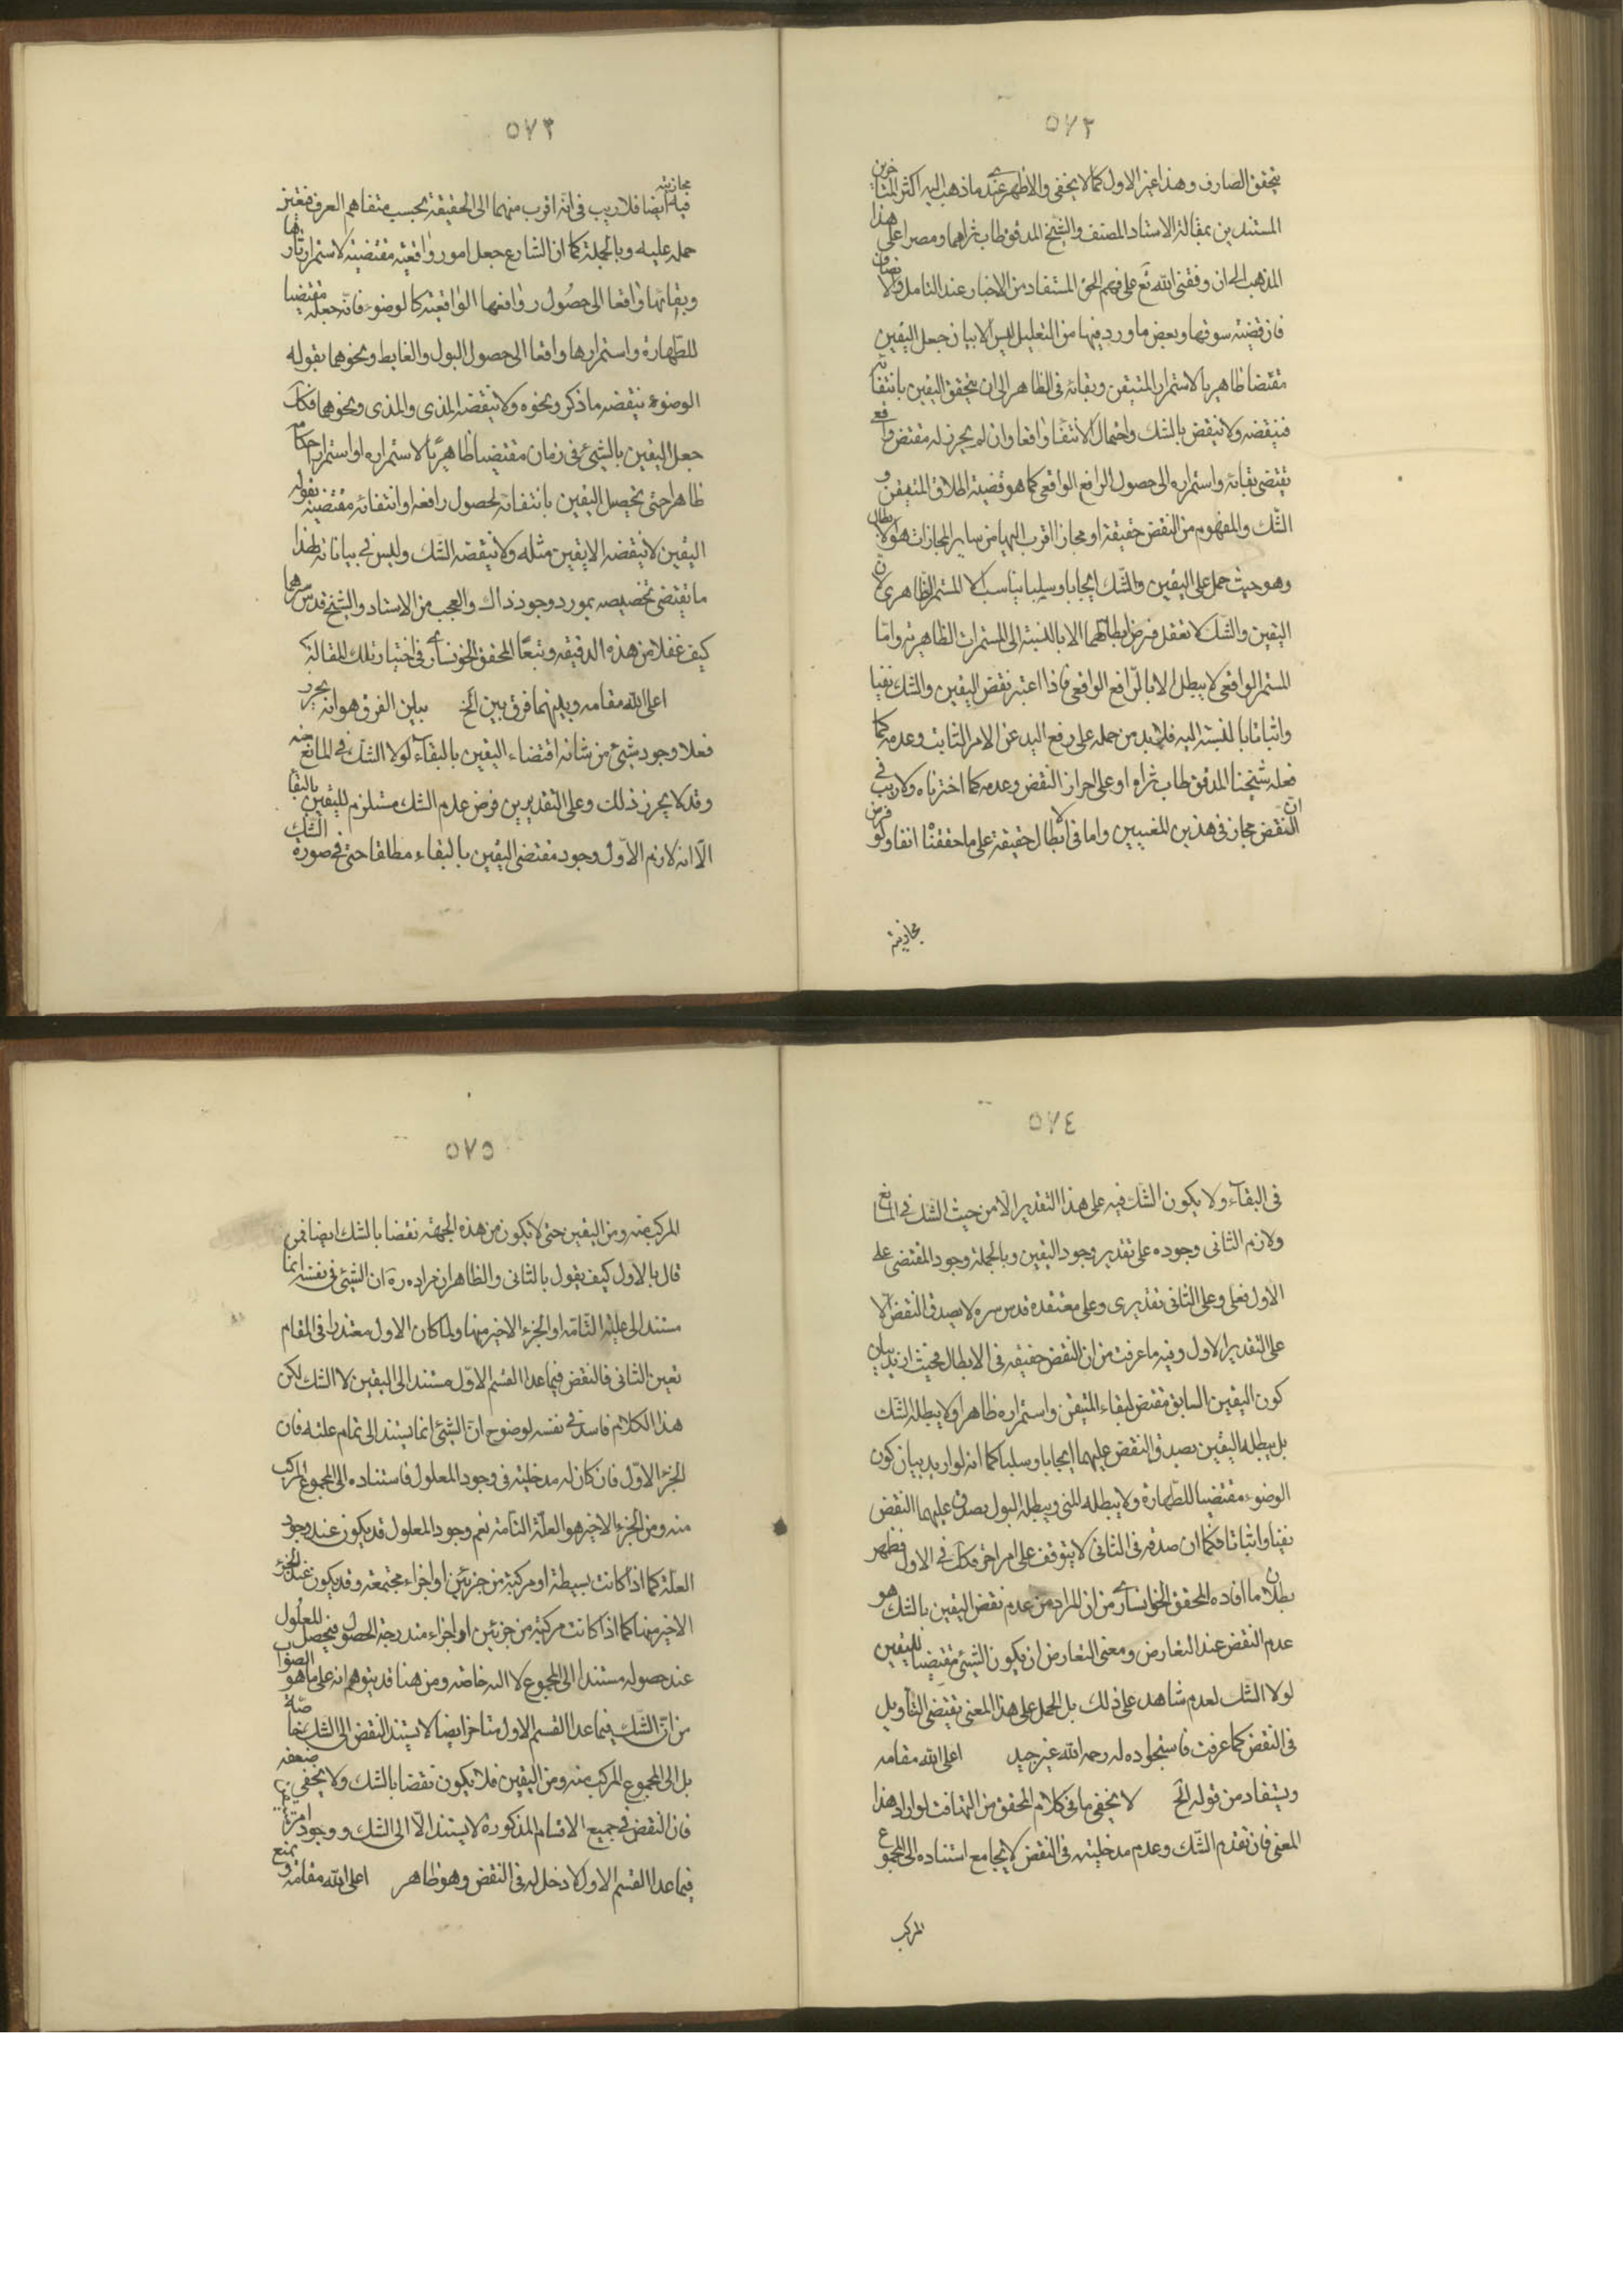 ٥٧٢
يتحقق الصارف وهذا غير الاول كما لا يخفى والاظهر عندى ما ذهب اليه اكثر المتاخرين
المستندين بمقالة الاستاد المصنف والشيخ المدقق طاب ثراهما ومصرا على هذا
المذهب الى ان وفقنى الله تع على فهم الحق المستفاد من الاخبار عند التامل والانصاف
فان قضية سوقها وبعض ما ورد فيها من التعليل ليس الا بيان جعل اليقين
مقتضا ظاهريا لاستمرار المتيقن وبقائه فى الظاهر الى ان يتحقق اليقين بانتفائه
فينقضه ولا ينقض بالشك واحتمال الانتفاء واقعا وان لم يحرز له مقتض واقعى
يقتضى بقائه واستمراره الى حصول الرافع الواقعى كما هو قضية اطلاق المتيقن و
الشك والمفهوم من النقض حقيقة او مجازا اقرب اليها من ساير المجازات هو الابطال
وهو حيث حمل على اليقين والشك ايجابا وسلبا يناسب الا المستمر الظاهرى لان
اليقين والشك لا تعقل فرض ابطالهما الا بالنسبة الى المستمرات الظاهرية واما
المستمر الواقعى لا يبطل الا بالرافع الواقعى فاذا اعتبر نقض اليقين والشك نفيا
واثباتا بالنسبة اليه فلا بد من حمله على رفع اليد عن الامر الثابت وعدمه كما
فعله شيخنا المدقق طاب ثراه او على احراز النقض وعدمه كما اخترناه ولا ريب فى
ان النقض مجاز فى هذين المعنيين واما فى الابطال حقيقة على ما حققناه انفا ولو فرض
مجازيته
٥٧٣
مجازيته فيه ايضا فلا ريب فى انه اقرب منهما الى الحقيقة بحسب متفاهم العرف فيتعين
حمله عليه وبالجملة كما ان الشارع جعل امور واقعية مقتضية لاستمرار اثارها
وبقائها واقعا الى حصول روافعها الواقعية كالوضوء فانه جعله مقتضيا
للطهارة واستمرارها واقعا الى حصول البول والغايط ونحوهما بقوله
الوضوء ينقضه ما ذكر ونحوه ولا ينقضه المذى والمذى ونحوهما فكك
جعل اليقين بالشيئ فى زمان مقتضيا ظاهريا لاستمراره او استمرار احكامه
ظاهرا حتى يحصل اليقين بانتفائه لحصول رافعه او انتفائه مقتضيه بقوله
اليقين لا ينقضه الا يقين مثله ولا ينقضه الشك وليس فى بياناته لهذا
ما يقتضى تخصيصه بمورد وجود ذاك والعجب من الاستاد والشيخ قدس سرهما
كيف غفلا من هذه الدقيقة وتبعا المحقق الخونسارى فى اختيار تلك المقالة
اعلى الله مقامه وبينهما فرق بين الخ بيان الفرق هو انه يحرز
فعلا وجود شيئ من شانه اقتضاء اليقين بالبقاء لولا الشك فى المانع عنه
وقد لا يحرز ذلك وعلى التقديرين فرض عدم الشك مستلزم لليقين بالبقا
الا انه لازم الاول وجود مقتضى اليقين بالبقاء مطلقا حتى فى صورة الشك
٥٧٤
فى البقاء ولا يكون الشك فيه على هذا التقدير الا من حيث الشك فى المانع
ولازم الثانى وجوده على تقدير وجود اليقين وبالجملة وجود المقتضى على
الاول فعلى وعلى الثانى تقديرى وعلى معتقده قدس سره لا يصدق النقض الا
على التقدير الاول وفيه ما عرفت من ان النقض حقيقة فى الابطال فحيث اريد بيان
كون اليقين السابق مقتض لبقاء المتيقن واستمراره ظاهرا ولا يبطله الشك
بل يبطله اليقين يصدق النقض عليهما ايجابا وسلبا كما انه لو اريد بيان كون
الوضوء مقتضيا للطهارة ولا يبطله المنى ويبطله البول يصدق عليهما النقض
نفيا واثباتا فكما ان صدقه فى الثانى لا يتوقف على امر اخر فكك فى الاول فظهر
بطلان ما افاده المحقق الخوانسارى من ان المراد من عدم نقض اليقين بالشك هو
عدم النقض عند التعارض ومعنى التعارض ان يكون الشيئ مقتضيا لليقين
لولا الشك لعدم شاهد على ذلك بل الحمل على هذا المعنى يقتضى التاويل
فى النقض كما عرفت فاستجواده له رحمه الله غير جيد اعلى الله مقامه
ويستفاد من قوله الخ لا يخفى ما فى كلام المحقق من التهافت لو اراد هذا
المعنى فان تقدم الشك وعدم مدخليته فى النقض لا يجامع استناده الى المجموع
المركب
٥٧٥
المركب منه ومن اليقين حتى لا يكون من هذه الجهة نقضا بالشك ايضا فمن
قال بالاول كيف يقول بالثانى والظاهر ان مراده ره ان الشيئ فى نفسه انما
مستند الى علته التامة او الجزء الاخير منها ولما كان الاول معتذرا فى المقام
تعين الثانى فالنقض فيما عدا القسم الاول مستند الى اليقين لا الشك لكن
هذا الكلام فاسد فى نفسه لوضوح ان الشيئ انما يستند الى تمام علته فان
الجزء الاول فان كان له مدخلية فى وجود المعلول فاستناده الى المجموع المركب
منه ومن الجزء الاخير هو العلة التامة نعم وجود المعلول قد يكون عند وجود
العلة كما اذا كانت بسيطة او مركبة من جزئين او اجزاء مجتمعة وقد يكون عند الجزء
الاخير منها كما اذا كانت مركبة من جزئين او اجزاء متدرجة الحصول فيحصل المعلول
عند حصوله مستندا الى المجموع لا اليه خاصة ومن هنا قد يتوهم انه على ما هو الصواب
من ان الشك فيما عدا القسم الاول متاخر ايضا لا يستند النقض الى الشك خاصة
بل الى المجموع المركب منه ومن اليقين فلا يكون نقضا بالشك ولا يخفى ضعفه
فان النقض فى جميع الاقسام المذكورة لا يستند الا الى الشك ووجود امر
فيما عدا القسم الاول لا دخل له فى النقض وهو ظاهر اعلى الله مقامه و يمنع